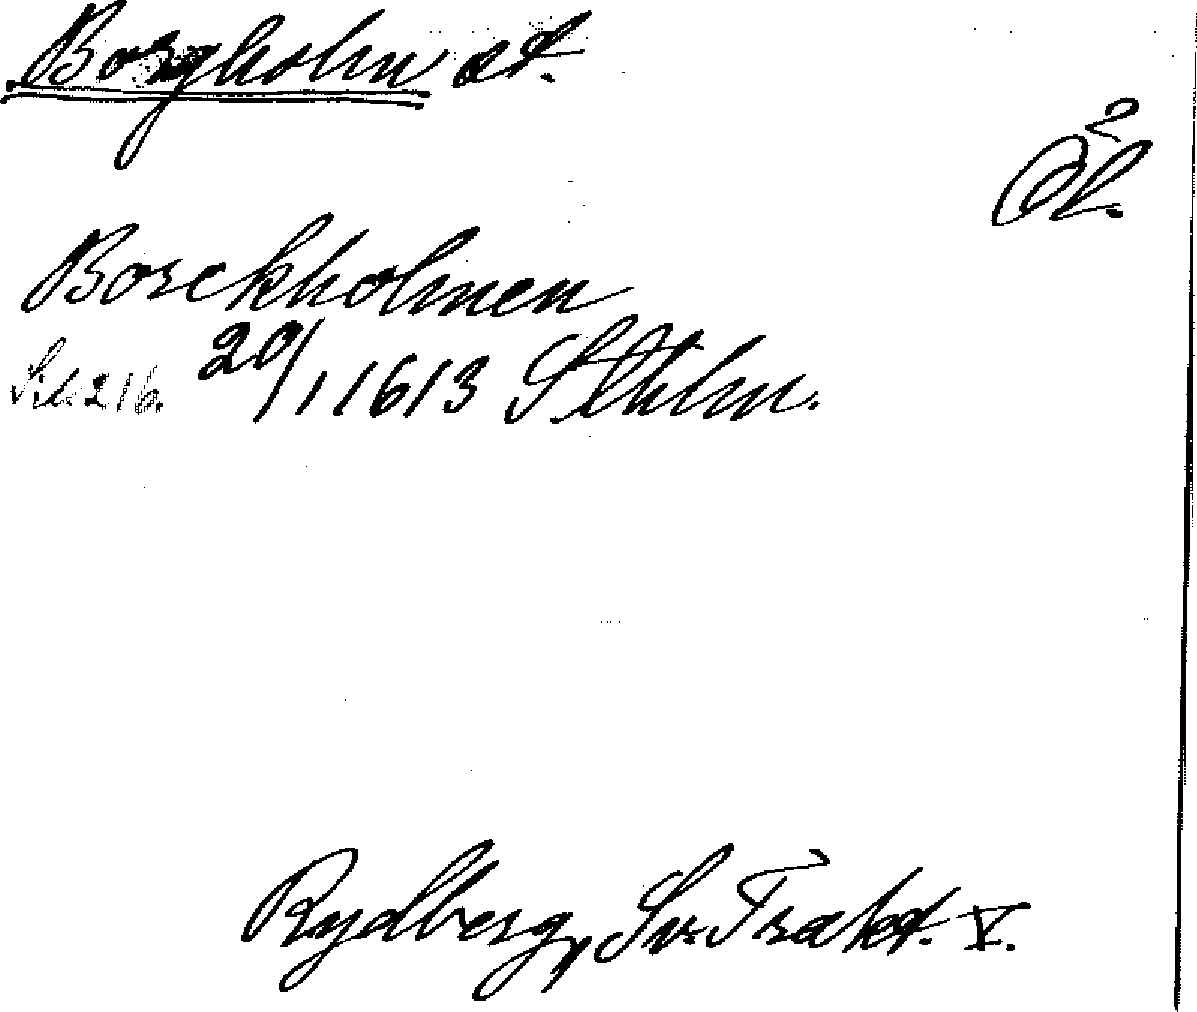 Borgholm st.
Öl.
Borckholmen
Sid. 216. 20/1 1613 Sthlm.
Rydberg, Sv. Trakt. V.